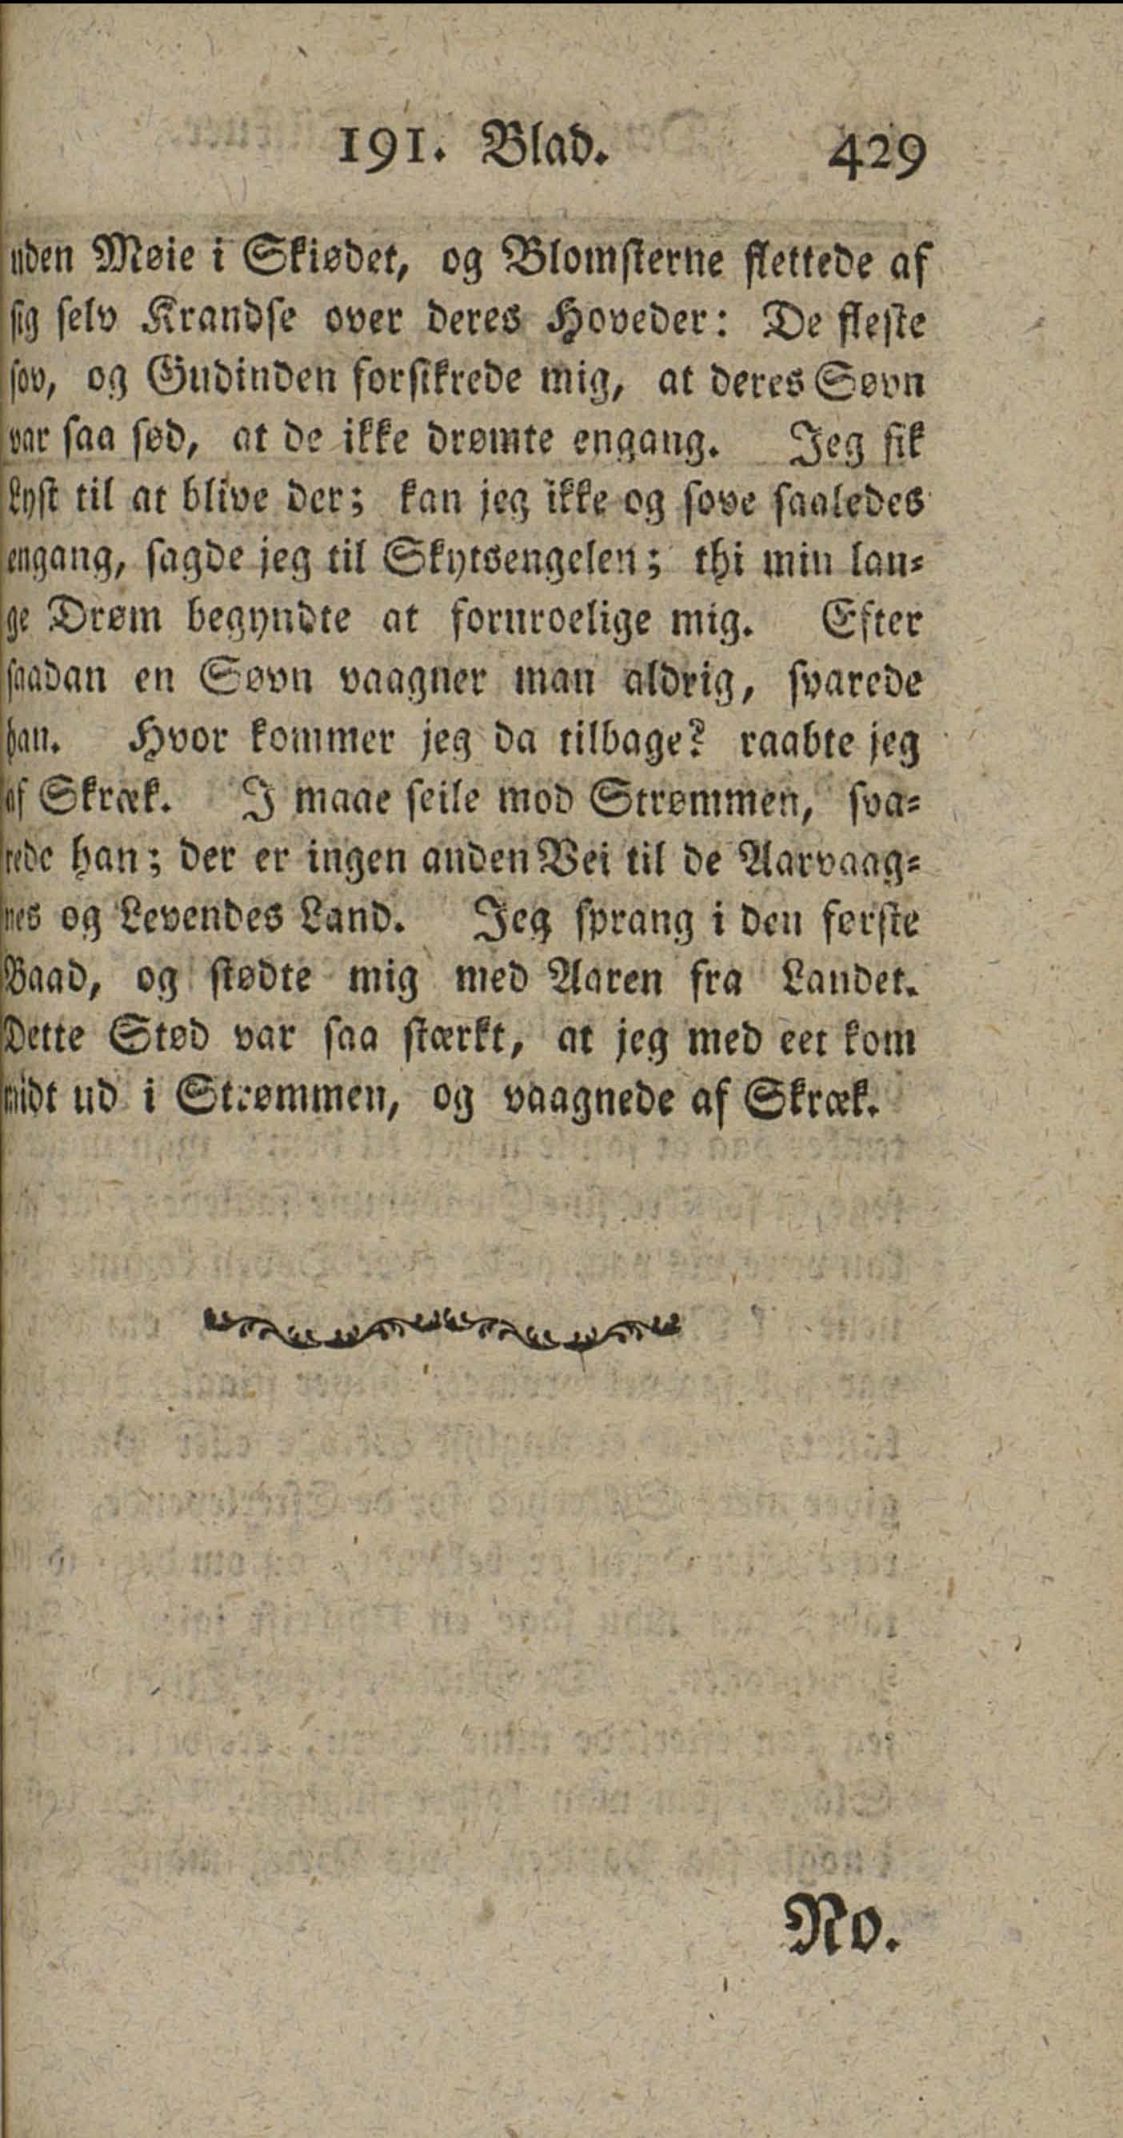 191. Blad. 429
uden Møie i Skiødet, og Blomsterne flettede af
sig selv Krandse over deres Hoveder: De fleste
sov, og Gudinden forsikrede mig, at deres Søvn
var saa sød, at de ikke drømte engang. Jeg fik
Lyst til at blive der; kan jeg ikke og sove saaledes
engang, sagde jeg til Skytsengelen; thi min lan-
ge Drøm begyndte at foruroelige mig. Efter
saadan en Søvn vaagner man aldrig, svarede
han. Hvor kommer jeg da tilbage? raabte jeg
af Skræk. I maae seile mod Strømmen, sva-
rede han; der er ingen anden Vei til de Aarvaag-
nes og Levendes Land. Jeg sprang i den første
Baad, og stødte mig med Aaren fra Landet.
Dette Stød var saa stærkt, at jeg med eet kom
midt ud i Strømmen, og vaagnede af Skræk.
No.